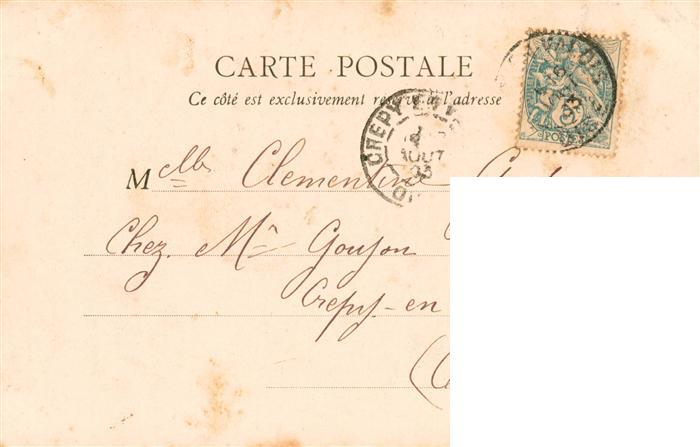 CARTE POSTALE
Ce côté est exclusivement réservé à l'adresse
CREPY EN V
AOUT
03
VALOIS
POSTES
Melle Clementine
Chez. Mr Goujon
Crepy-en